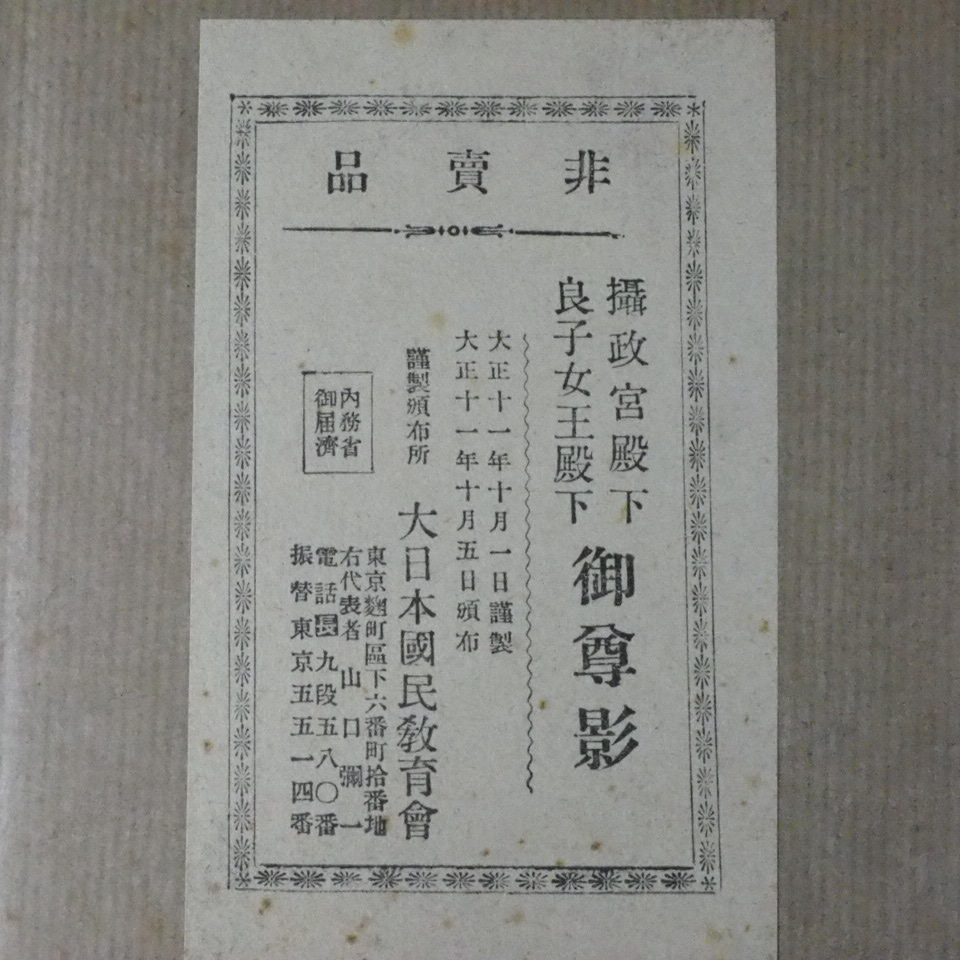 非賣品
攝政宮殿下
良子女王殿下
御尊影
大正十一年十月一日謹製
大正十一年十月五日頒布
謹製頒布所
大日本國民敎育會
東京麴町區下六番町拾番地
右代表者 山口彌一
電話長九段五八〇番
振替東京五五一四番
內務省
御届濟